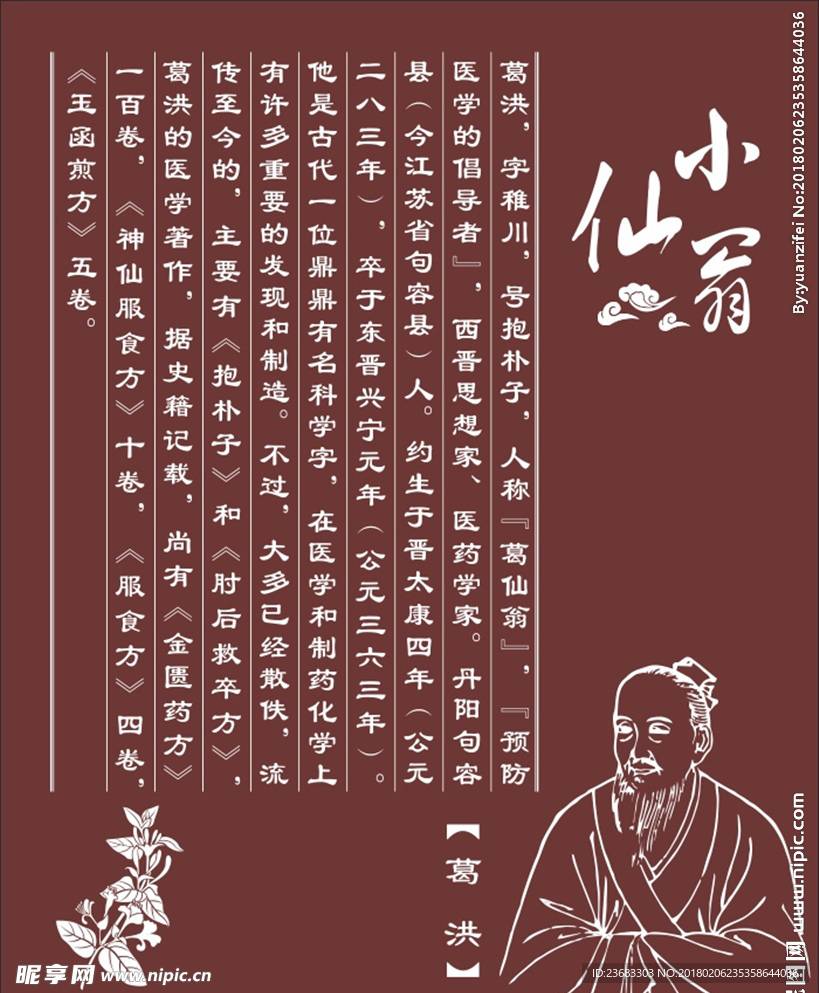 小仙翁
葛洪，字稚川，号抱朴子，人称『葛仙翁』，『预防
医学的倡导者』，西晋思想家、医药学家。丹阳句容
县（今江苏省句容县）人。约生于晋太康四年（公元
二八三年），卒于东晋兴宁元年（公元三六三年）。
他是古代一位鼎鼎有名科学字，在医学和制药化学上
有许多重要的发现和制造。不过，大多已经散佚，流
传至今的，主要有《抱朴子》和《肘后救卒方》，
葛洪的医学著作，据史籍记载，尚有《金匮药方》
一百卷，《神仙服食方》十卷，《服食方》四卷，
《玉函煎方》五卷。
【葛洪】
By:yuanzifei No:20180206235358644036
www.nipic.com
昵享网 www.nipic.cn
ID:23683303 NO:20180206235358644036